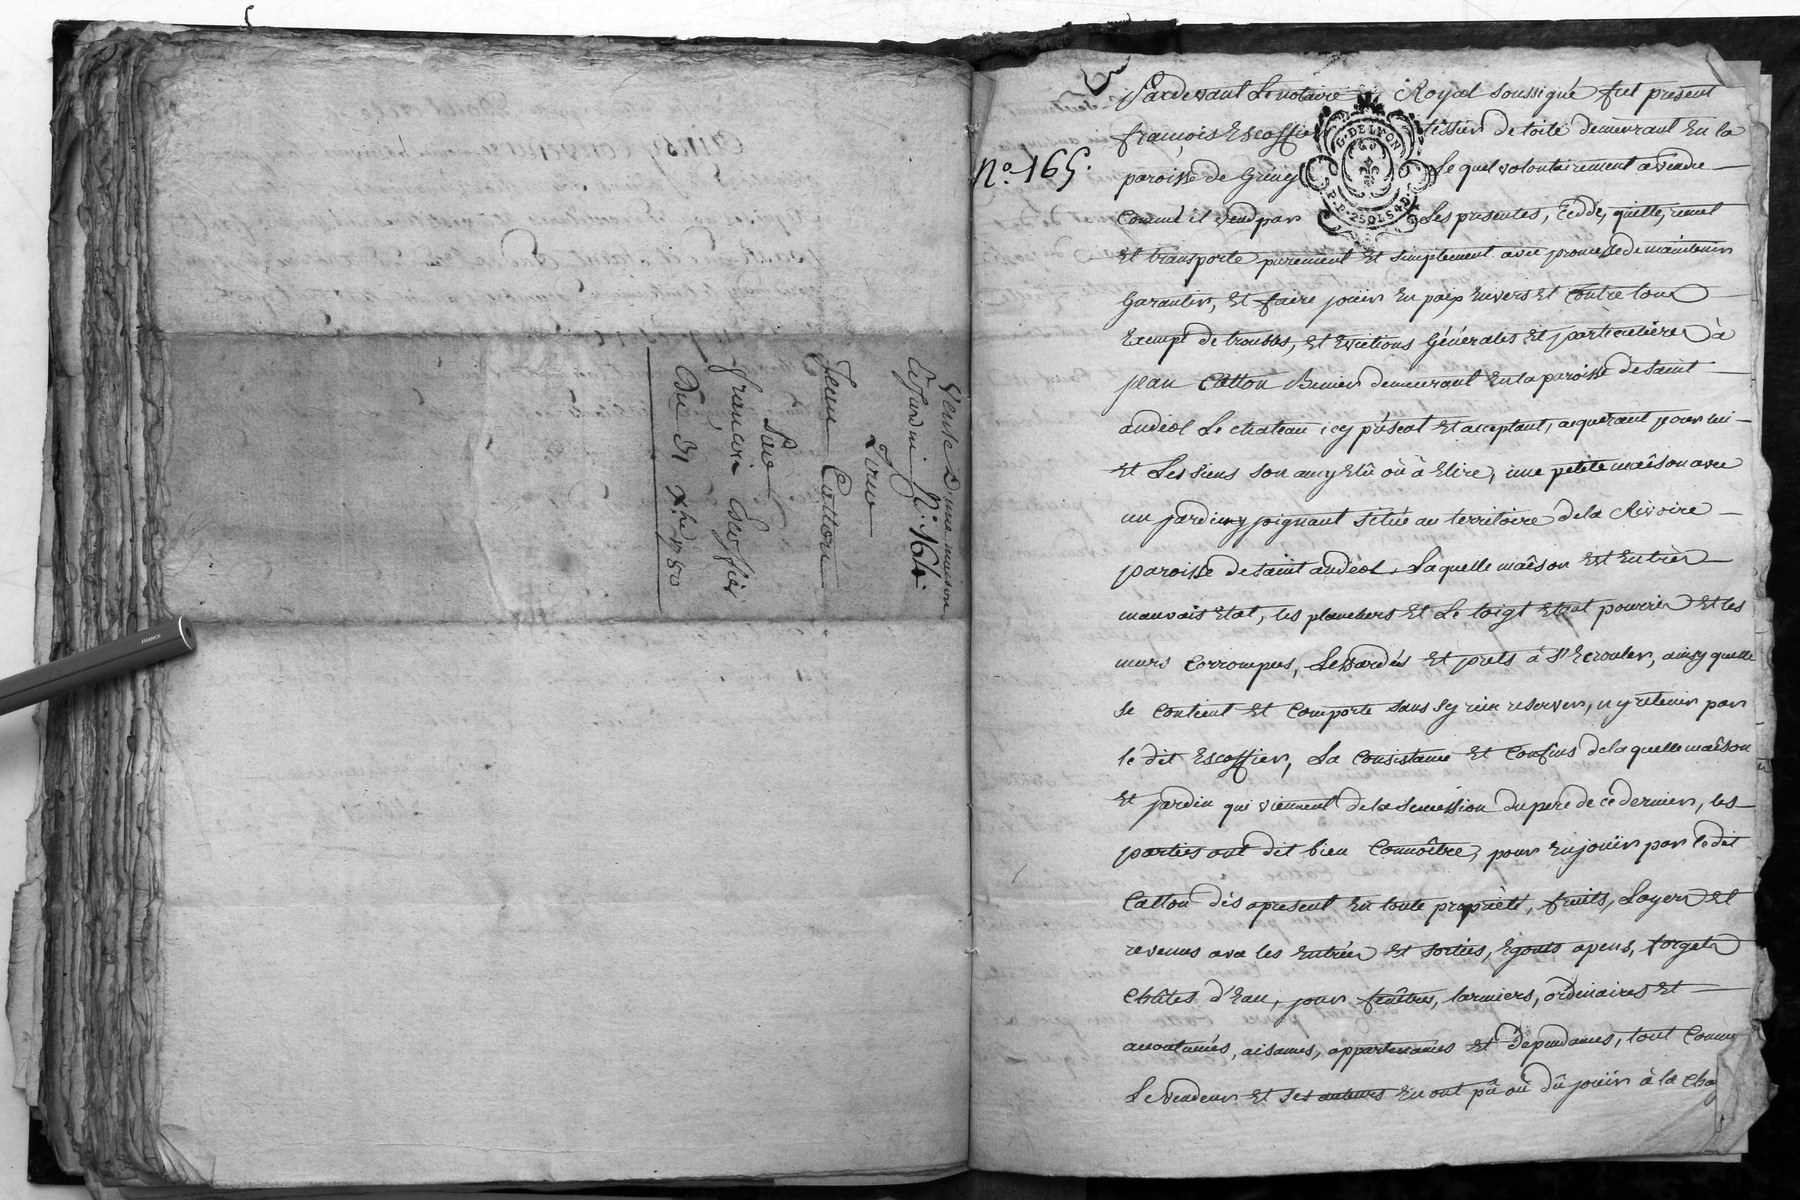 Vente D'une maison
& Jardin N.° 164.
Pour
Jean Cattoné
Par
françois Escoffier
Du 31 Xbre 1780
FRANCE
N.° 165.
Pardevant Le notaire Royal soussigné fut présent
françois Escoffier tissier de toile demeurant En la
paroisse de Grivey Le quel volontairement a vendu
Comme il vend par Les présentes, Cedde, quitte, remet
Et transporte purement Et simplement avec promesse de maintenir
Garantir, Et faire jouir En paix Envers Et Contre tous
Exempt de troubles, Et Evictions Générales Et particulières à
jean Catton demeurant En la paroisse de saint
andéol Le chateau icy présent Et acceptant, acquerant pour lui
Et Les siens son amy Elû où à Elire, une petite maison avec
un jardin y joignant situé au territoire de la Rivoire
paroisse de saint andéol, Laquelle maison Est En très
mauvais Etat, les planchers Et Le toigt Etant pourris Et les
murs Corrompus, Lésardés Et prets à S'Ecrouler, ainsy quelle
se Contient Et Comporte sans sy rien reserver, ny retenir par
le dit Escoffier, La Consistance Et Confins de laquelle maison
Et jardin qui viennent de la succession du pere de ce dernier, les
parties ont dit bien Connoître, pour En jouir par le dit
Catton dès apresent En toute propriété, fruits, Loyers Et
revenus avec les Entrées Et sorties, Egouts apens, forgets
Chûtes d'Eau, jours fenêtres, larmiers, ordinaires Et
accoutumés, aisances, appartenances Et dépendances, tout Comme
Le vendeur Et ses auteurs En ont pû où dû jouir à la Cha
G. DE LYON
P. P. 2 SOLS 4 D